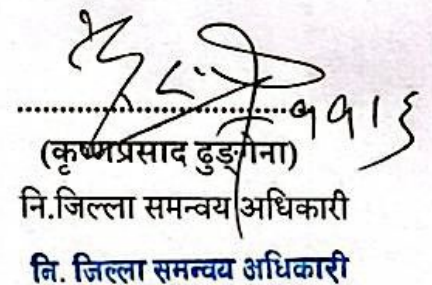 ....................................११।६
(कृष्णप्रसाद ढुङ्गेना)
नि.जिल्ला समन्वय अधिकारी
नि. जिल्ला समन्वय अधिकारी